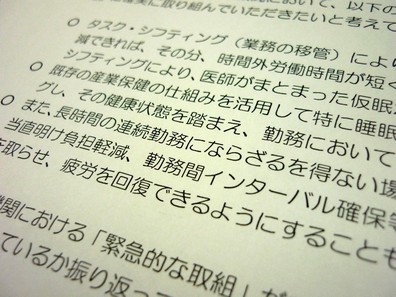 において、以下の
確実に取り組んでいただきたいと考えて
○ タスク・シフティング（業務の移管）によ
減できれば、その分、時間外労働時間が短く
シフティングにより、医師がまとまった仮眠
○ 既存の産業保健の仕組みを活用して特に睡眠
グし、その健康状態を踏まえ、勤務において
○ また、長時間の連続勤務にならざるを得ない場
当直明け負担軽減、勤務間インターバル確保等
を取らせ、疲労を回復できるようにすることも
機関における「緊急的な取組」が
ているか振り返って